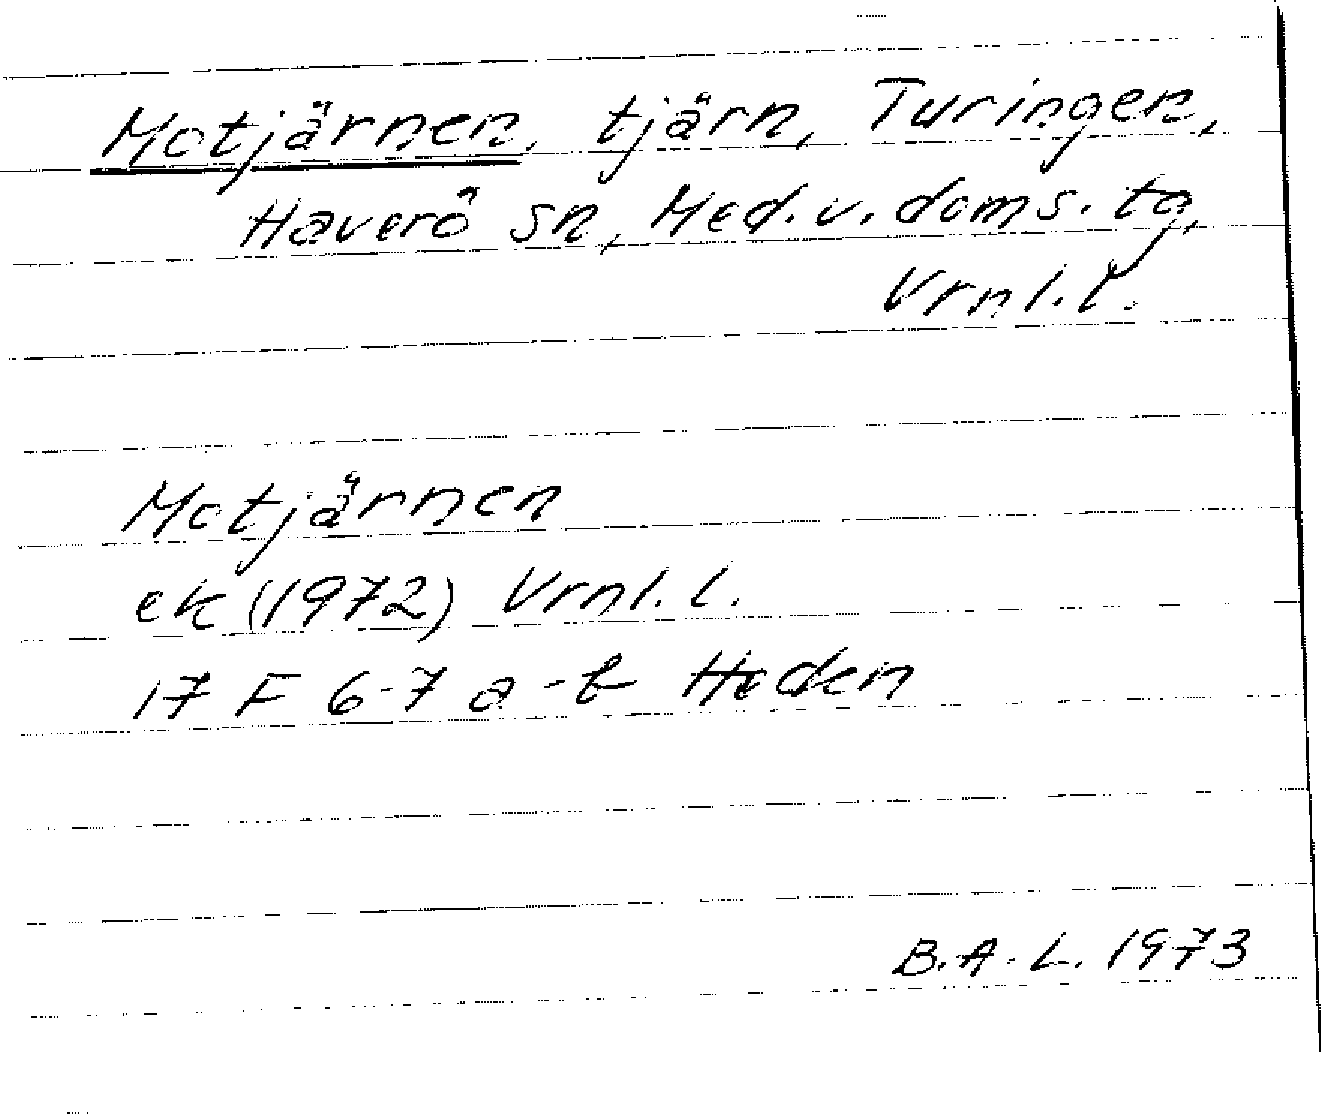 Motjärnen, tjärn, Turingen,
Haverö sn, Med. v. doms. tg,
Vrnl. l.
Motjärnen
ek (1972) Vrnl. l.
17 F 6-7 a-b Heden
B.A.L. 1973